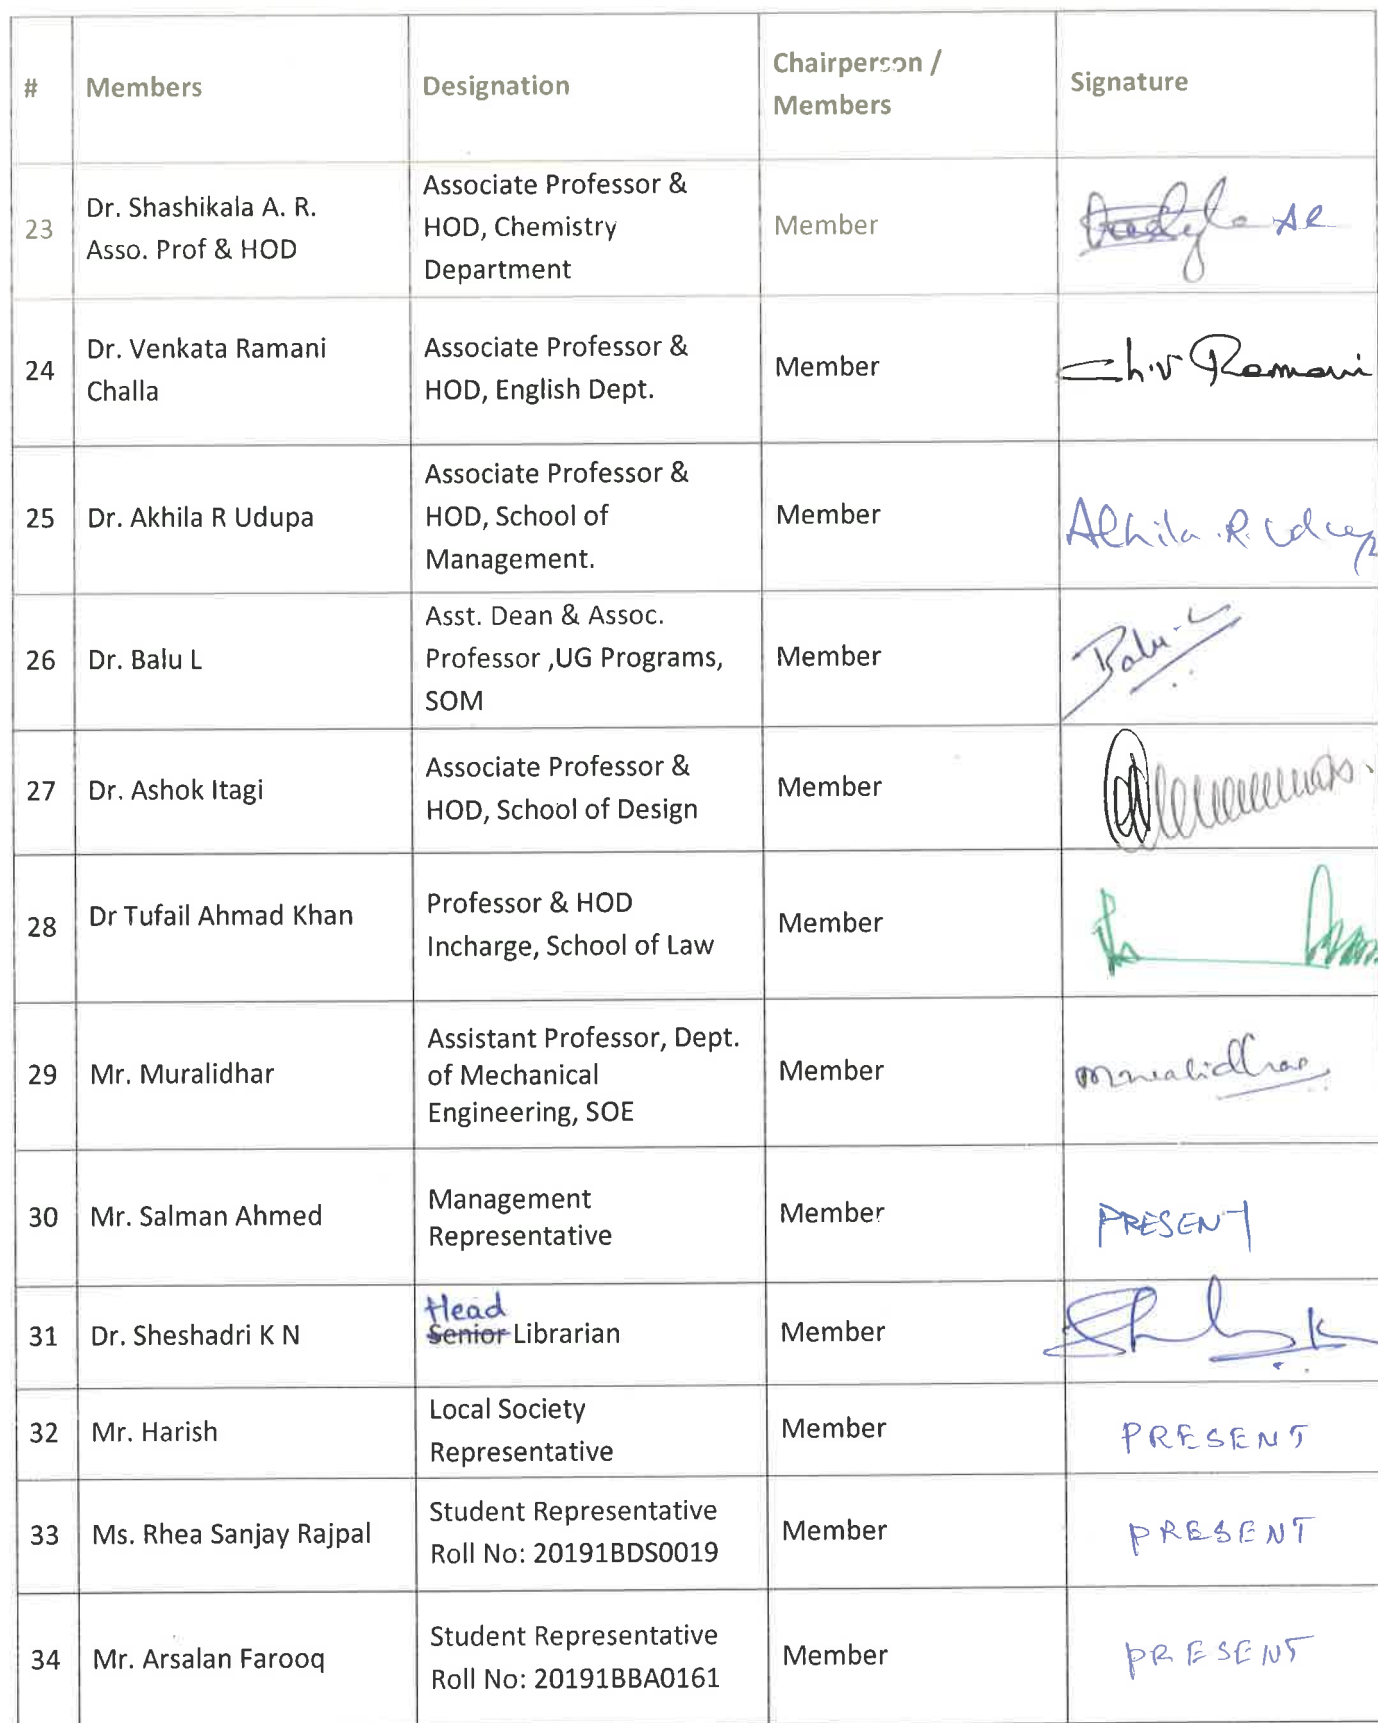 #
Members
Designation
Chairperson /
Members
Signature
23
Dr. Shashikala A. R.
Asso. Prof & HOD
Associate Professor &
HOD, Chemistry
Department
Member
AR
24
Dr. Venkata Ramani
Challa
Associate Professor &
HOD, English Dept.
Member
Ch.V Ramani
25
Dr. Akhila R Udupa
Associate Professor &
HOD, School of
Management.
Member
Akhila.R.Udupa
26
Dr. Balu L
Asst. Dean & Assoc.
Professor ,UG Programs,
SOM
Member
Balu-L
27
Dr. Ashok Itagi
Associate Professor &
HOD, School of Design
Member
28
Dr Tufail Ahmad Khan
Professor & HOD
Incharge, School of Law
Member
29
Mr. Muralidhar
Assistant Professor, Dept.
of Mechanical
Engineering, SOE
Member
Muralidhar
30
Mr. Salman Ahmed
Management
Representative
Member
PRESENT
31
Dr. Sheshadri K N
Head
Senior Librarian
Member
32
Mr. Harish
Local Society
Representative
Member
PRESENT
33
Ms. Rhea Sanjay Rajpal
Student Representative
Roll No: 20191BDS0019
Member
PRESENT
34
Mr. Arsalan Farooq
Student Representative
Roll No: 20191BBA0161
Member
PRESENT